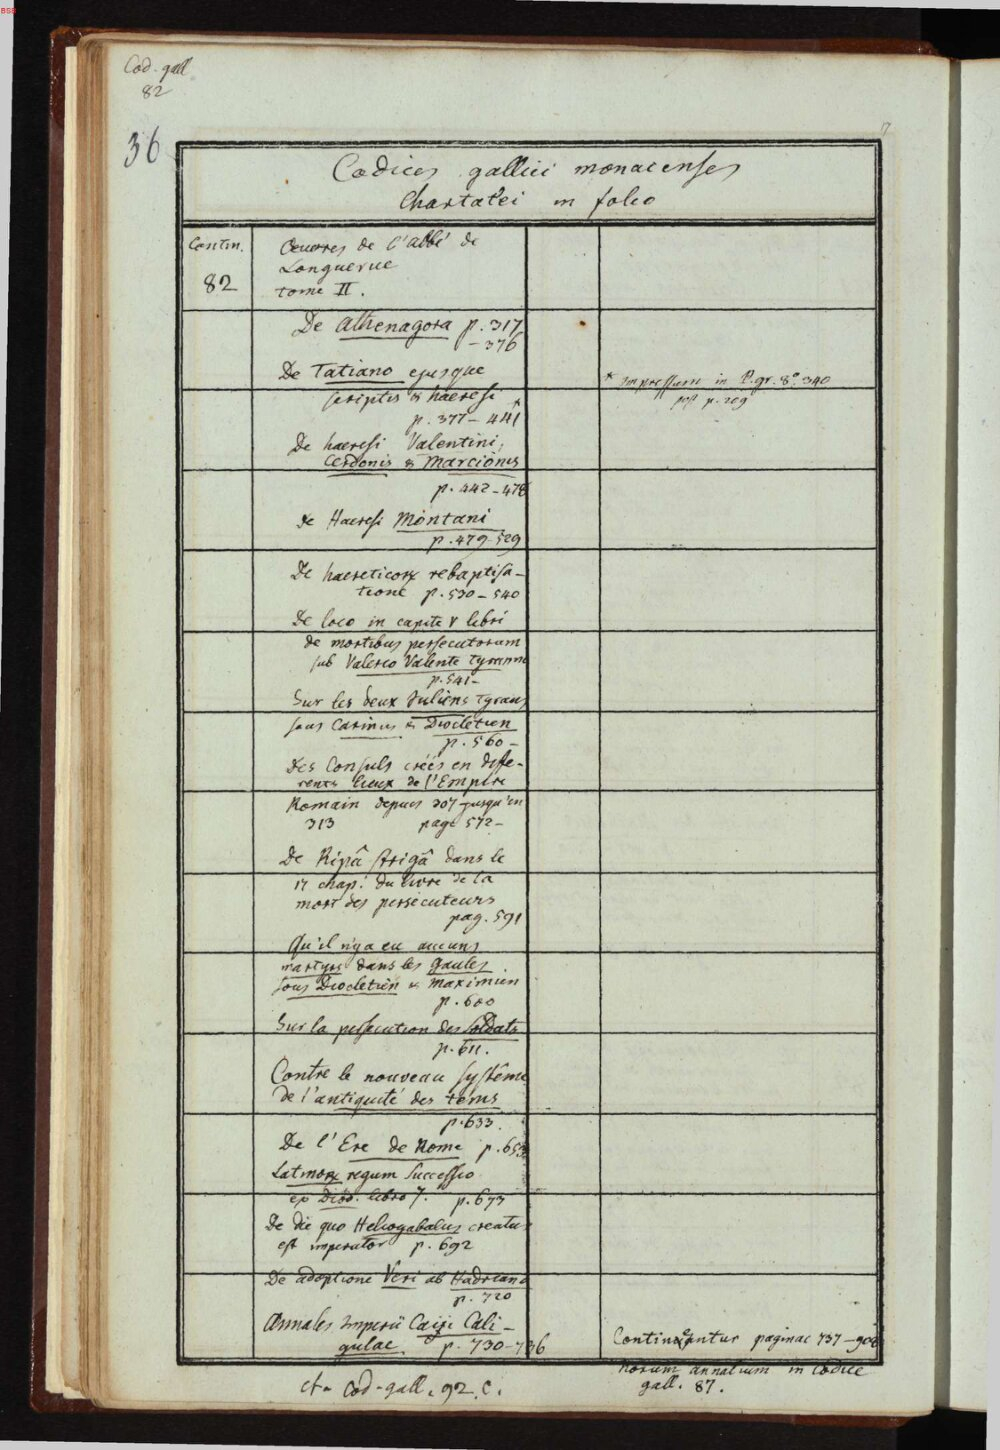 BSB
Cod. gall
82
36
17
Codices gallici monacenses
Chartacei in folio
Contin.
82
Oeuvres de l'abbé de
Longuerue
tome II.
De Athenagora p. 317
- 376
De Tatiano ejusque
scriptis & haeresi
p. 377 - 441*
* impressum in P. gr. 8° 340
post p. 209
De haeresi Valentini,
Cerdonis & Marcionis
p. 442 - 478
de Haeresi Montani
p. 479-529
De haereticorꝝ rebaptisa-
tione p. 530 - 540
De loco in capite V libri
de mortibus persecutorum
sub Valerio Valente Tyranno
p. 541 -
Sur les deux Juliens Tyrans
sous Carinus & Diocletien
p. 560 -
Des Consuls créés en diffe-
rents lieux de l'Empire
Romain depuis 307 jusqu'en
313 page 572 -
De Ripâ strigâ dans le
17 chap. du livre de la
mort des persécuteurs
pag. 591
Qu'il n'y a eu aucuns
martyrs dans les Gaules
sous Diocletien & Maximien
p. 600
Sur la persecution des Soldats
p. 611.
Contre le nouveau systême
de l'antiquité des tems
p. 633.
De l'Ere de Rome p. 653
Latinorꝝ regum Successio
ex Diod. libro 7. p. 673
De die quo Heliogabalus creatus
est imperator p. 692
De adoptione Veri ab Hadriano
p. 720
Annales Imperii Caiji Cali-
gulae. p. 730-736
Continentur paginae 737 - 908
horum annalium in Codice
gall. 87.
cf. Cod. gall. 92. C.